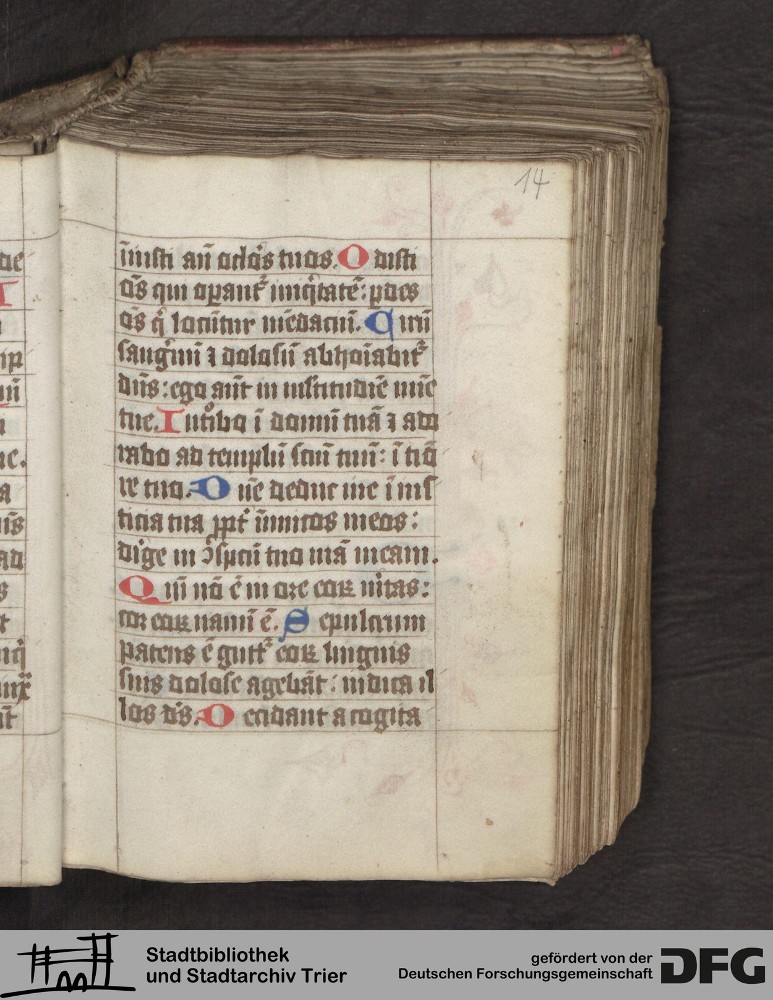 14
iniusti an̄ ocl'os tuos. O disti
oēs qui opant᷑ iniq̇tatē: ꝑdes
oēs q̇ locūtur mēdaciū. V irū
sanguinū ⁊ dolosū abhoīabit᷑
dn̄s: ego aūt in m̄ltitudīe mīe
tue. I ntͦibo ī domū tuā ⁊ ado
rabo ad templū scm̄ tuū: ī tīo
re tuo. D ñe deduc me ī ius
ticia tua ꝓpt̄ īnimicos meos:
dirige in ꝯspcū tuo viā meam.
Q m̄ nō ē in ore eoꝝ ueritas:
cor eoꝝ uanū ē. S epulcrum
patens ē gutt᷑ eoꝝ linguis
suis dolose agebāt: iudica il
los ds̄. D ecidant a cogita
Stadtbibliothek
und Stadtarchiv Trier
gefördert von der
Deutschen Forschungsgemeinschaft
DFG